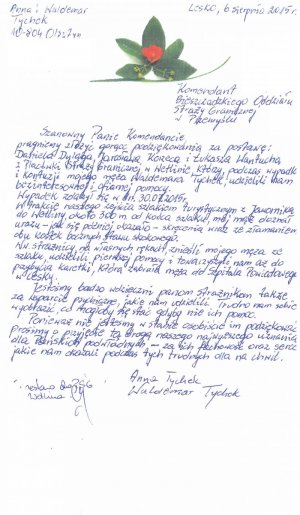 Anna i Waldemar
Tychek
10-804 Olsztyn
Lesko, 6 sierpnia 2015 r.
Komendant
Bieszczadzkiego Oddziału
Straży Granicznej
w Przemyślu
Szanowny Panie Komendancie
pragniemy złożyć gorące podziękowania za postawę:
Daniela Dyląga, Jarosława Korzca i Łukasza Wantucha
z Placówki Straży Granicznej w Wetlinie, którzy podczas wypadku
i kontuzji mojego męża Waldemara Tychek, udzielili nam
bezinteresownej i ofiarnej pomocy.
Wypadek zdarzył się w dn. 30.07.2015 r.
W trakcie naszego zejścia szlakiem turystycznym z Jawornika
do Wetliny, około 300 m od końca szlaku, mój mąż doznał
urazu – jak się później okazało – skręcenia wraz ze złamaniem
obu kostek bocznych stawu skokowego.
Ww. strażnicy, na własnych rękach, znieśli mojego męża ze
szlaku, udzielili pierwszej pomocy i towarzyszyli nam aż do
przybycia karetki, która zabrała męża do Szpitala Powiatowego
w Lesku.
Jesteśmy bardzo wdzięczni panom Strażnikom także
za wsparcie psychiczne, jakie nam udzielili. Trudno nam sobie
wyobrazić, co mogłoby się stać gdyby nie ich pomoc.
Ponieważ nie jesteśmy w stanie osobiście im podziękować
prosimy o przyjęcie tą drogą naszego najwyższego uznania
dla Pańskich podwładnych, – za ich fachowość oraz serce
jakie nam okazali podczas tych trudnych dla nas chwil.
Anna Tychek
Waldemar Tychek